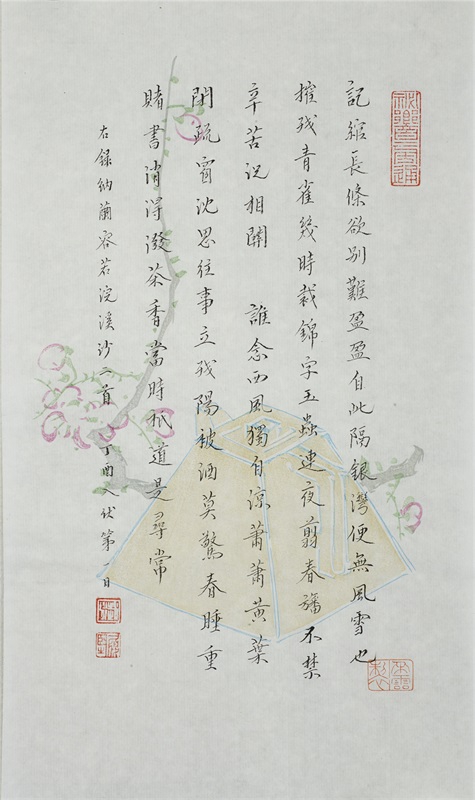 記綰長條欲別難盈盈自此隔銀灣便無風雪也
摧殘青雀幾時裁錦字玉蟲連夜翦春旛不禁
辛苦況相關 誰念西風獨自涼蕭蕭黃葉
閉疏窗沈思往事立殘陽被酒莫驚春睡重
賭書消得潑茶香當時祇道是尋常
右錄納蘭容若浣溪沙二首 丁酉入伏第一日